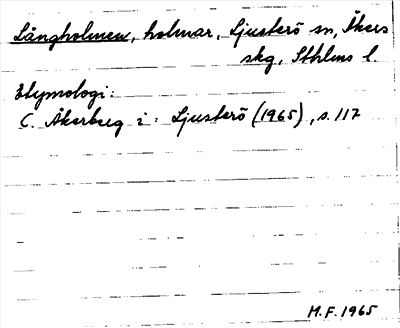 Långholmen, holmar, Ljusterö sn, Åkers
skg, Sthlms l.
Etymologi:
C. Åkerberg i: Ljusterö (1965), s. 117
M.F. 1965